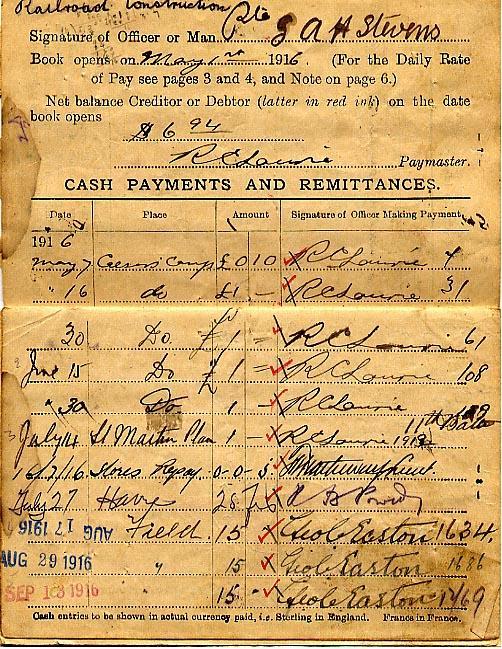 Railroad Construction
Signature of Officer or Man Pte G A H Stevens
Book opens on May 1st 1916 (For the Daily Rate
of Pay see pages 3 and 4, and Note on page 6.)
Net balance Creditor or Debtor (latter in red ink) on the date
book opens
$6 94
R C Laurie Paymaster.
CASH PAYMENTS AND REMITTANCES.
Date Place Amount Signature of Officer Making Payment
1916
May 7 Caesars Camp £ 0 10 R C Laurie 4
" 16 do £1 - R C Laurie 31
30 Do. £ 1 - R C Laurie 61
June 15 Do £ 1 - R C Laurie 108
" 30 Do. 1 - R C Laurie
11th Batn
July 14 St Martin Plain 1 - R C Laurie
16/7/16 Stores Repay 0-0-5
July 27 Havre 28
AUG 17 1916 Field 15 Geo C Easton 1634
AUG 29 1916 " 15 Geo C Easton 1686
SEP 13 1916 " 15 Geo C Easton 1769
Cash entries to be shown in actual currency paid, i.e. Sterling in England. Francs in France.